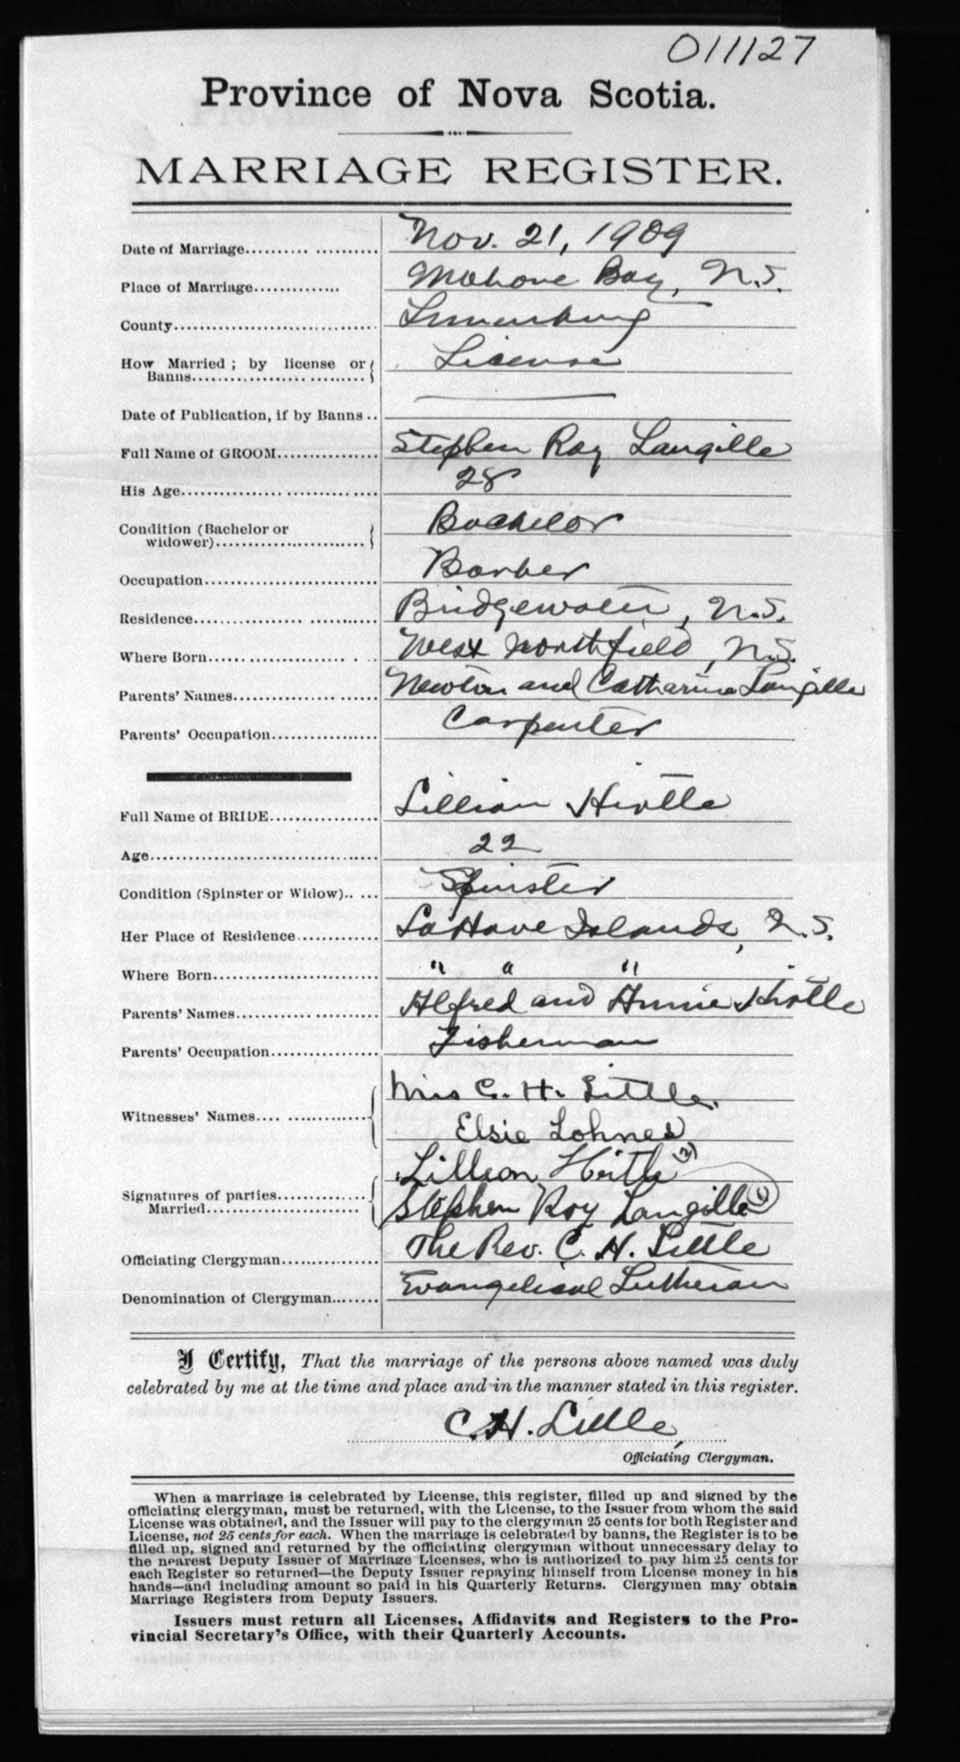 011127
Province of Nova Scotia.
MARRIAGE REGISTER.
Date of Marriage.................... Nov. 21, 1909
Place of Marriage............. Mahone Bay, N.S.
County............................. Lunenburg
How Married ; by license or License
Banns..........................
Date of Publication, if by Banns ..
Full Name of GROOM.............. Stephen Roy Langille
His Age............................ 28
Condition (Bachelor or Bachelor
widower)......................
Occupation......................... Barber
Residence.......................... Bridgewater, N.S.
Where Born...................... West Northfield, N.S.
Parents' Names..................... Newton and Catharine Langille
Parents' Occupation................ Carpenter
Full Name of BRIDE................. Lillian Hirtle
Age................................. 22
Condition (Spinster or Widow)..... Spinster
Her Place of Residence............ LaHave Islands, N.S.
Where Born....................... " " "
Parents' Names..................... Alfred and Annie Hirtle
Parents' Occupation................ Fisherman
Witnesses' Names.... ............. Mrs C. H. Little.
Elsie Lohnes
Lillian Hirtle (2)
Signatures of parties.............. Stephen Roy Langille (1)
Married.......................
Officiating Clergyman.............. The Rev. C. H. Little
Denomination of Clergyman....... Evangelical Lutheran
I Certify, That the marriage of the persons above named was duly
celebrated by me at the time and place and in the manner stated in this register.
C. H. Little,
Officiating Clergyman.
When a marriage is celebrated by License, this register, filled up and signed by the
officiating clergyman, must be returned, with the License, to the Issuer from whom the said
License was obtained, and the Issuer will pay to the clergyman 25 cents for both Register and
License, not 25 cents for each. When the marriage is celebrated by banns, the Register is to be
filled up, signed and returned by the officiating clergyman without unnecessary delay to
the nearest Deputy Issuer of Marriage Licenses, who is authorized to pay him 25 cents for
each Register so returned—the Deputy Issuer repaying himself from License money in his
hands—and including amount so paid in his Quarterly Returns. Clergymen may obtain
Marriage Registers from Deputy Issuers.
Issuers must return all Licenses, Affidavits and Registers to the Pro-
vincial Secretary's Office, with their Quarterly Accounts.